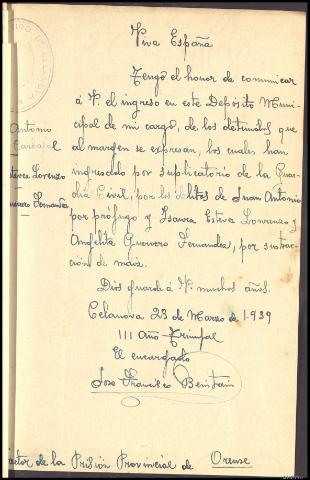 Viva España
Tengo el honor de comunicar
á V. el ingreso en este Depósito Muni-
cipal de mi cargo, de los detenidos que
al margen se espresan, los cuales han
ingresado por suplicatorio de la Guar-
dia Civil, por los delitos de Juan Antonio
por prófugo y Isaura Esteva Lourenzo y
Angelita Guerrero Fernandez, por sustrac-
ción de maiz.
Antonio
Carbajal
Esteva Lorenzo
Guerrero Fernandez
Dios guarde á V. muchos años.
Celanova 23 de Marzo de 1.939
III Año Triunfal
El encargado
Jose Francisco
Director de la Prisión Provincial de Orense